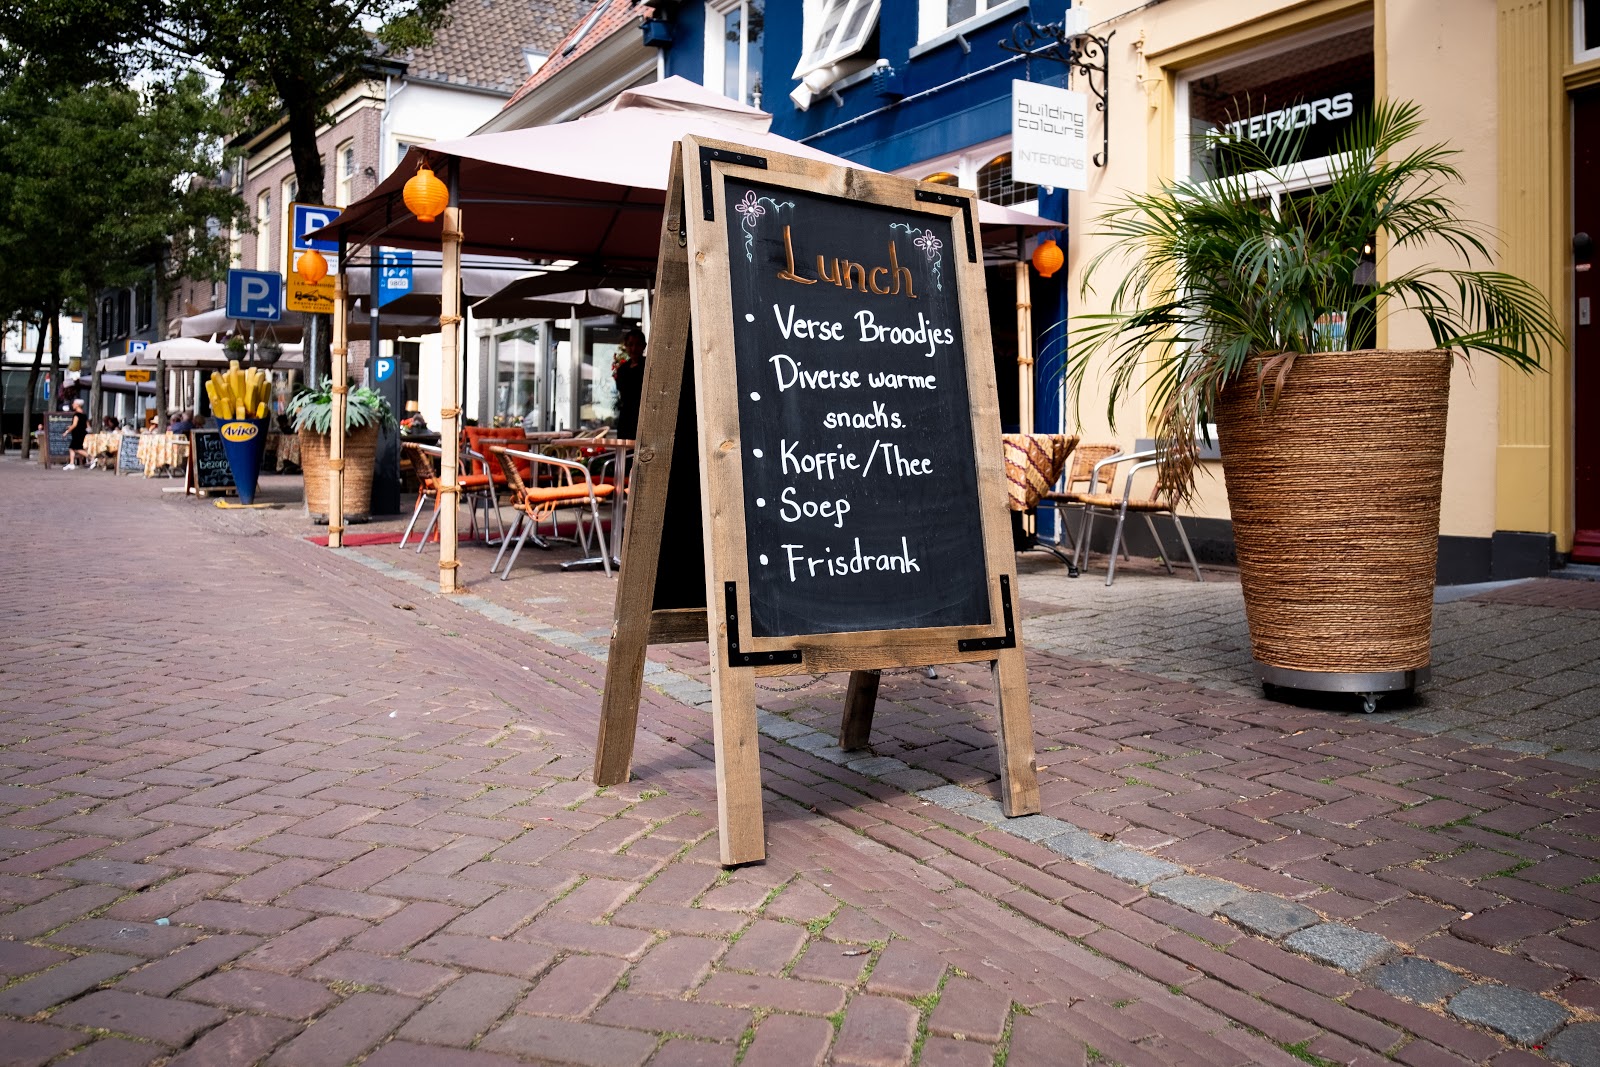 Lunch
• Verse Broodjes
Diverse warme
• snacks.
• Koffie/Thee
• Soep
• Frisdrank
building
colours
INTERIORS
INTERIORS
P
P
P
AVIKO
bezorg